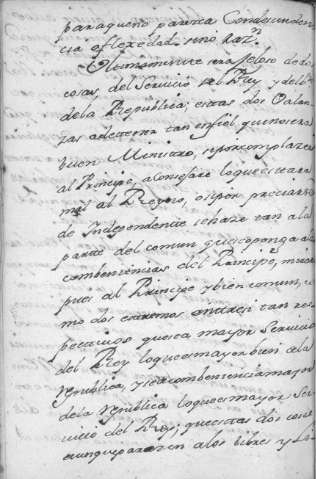 para que no parezca Condesenden
cia o flexedad, sino razn.
El ministro sera zeloso de dos
cosas, del Servicio del Rey y de lo
de la Republica; estas dos balan
zas ade tener tan en fiel, que no sera
buen Ministro, si por complazer
al Principe, aconsejare lo que estara
mal al Reyno, o si por preciarse
de Independiente se haze tan a la
parte del comun que se oponga a las
combeniencias del Principe,
pues el Principe y bien comun, co
mo dos extremos entre si tan res
pectivos que es a mayor Servicio
del Rey lo que es mayor bien a la
republica, y es a combeniencia mayor
de la republica lo que es mayor ser
vicio del Rey; que estas dos cosas
aunque parecen a los libres y